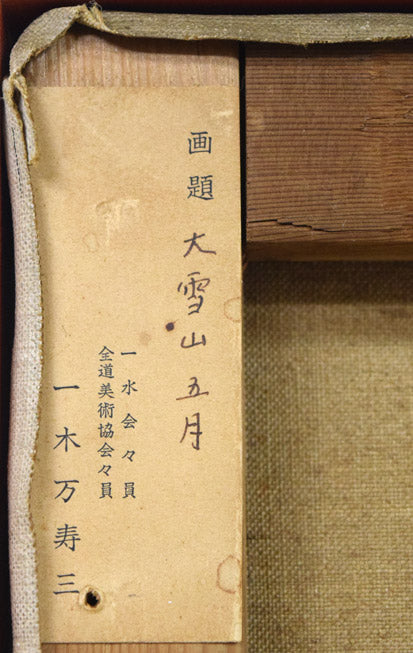 画題 大雪山 五月
一水会々員
全道美術協会々員
一木万寿三